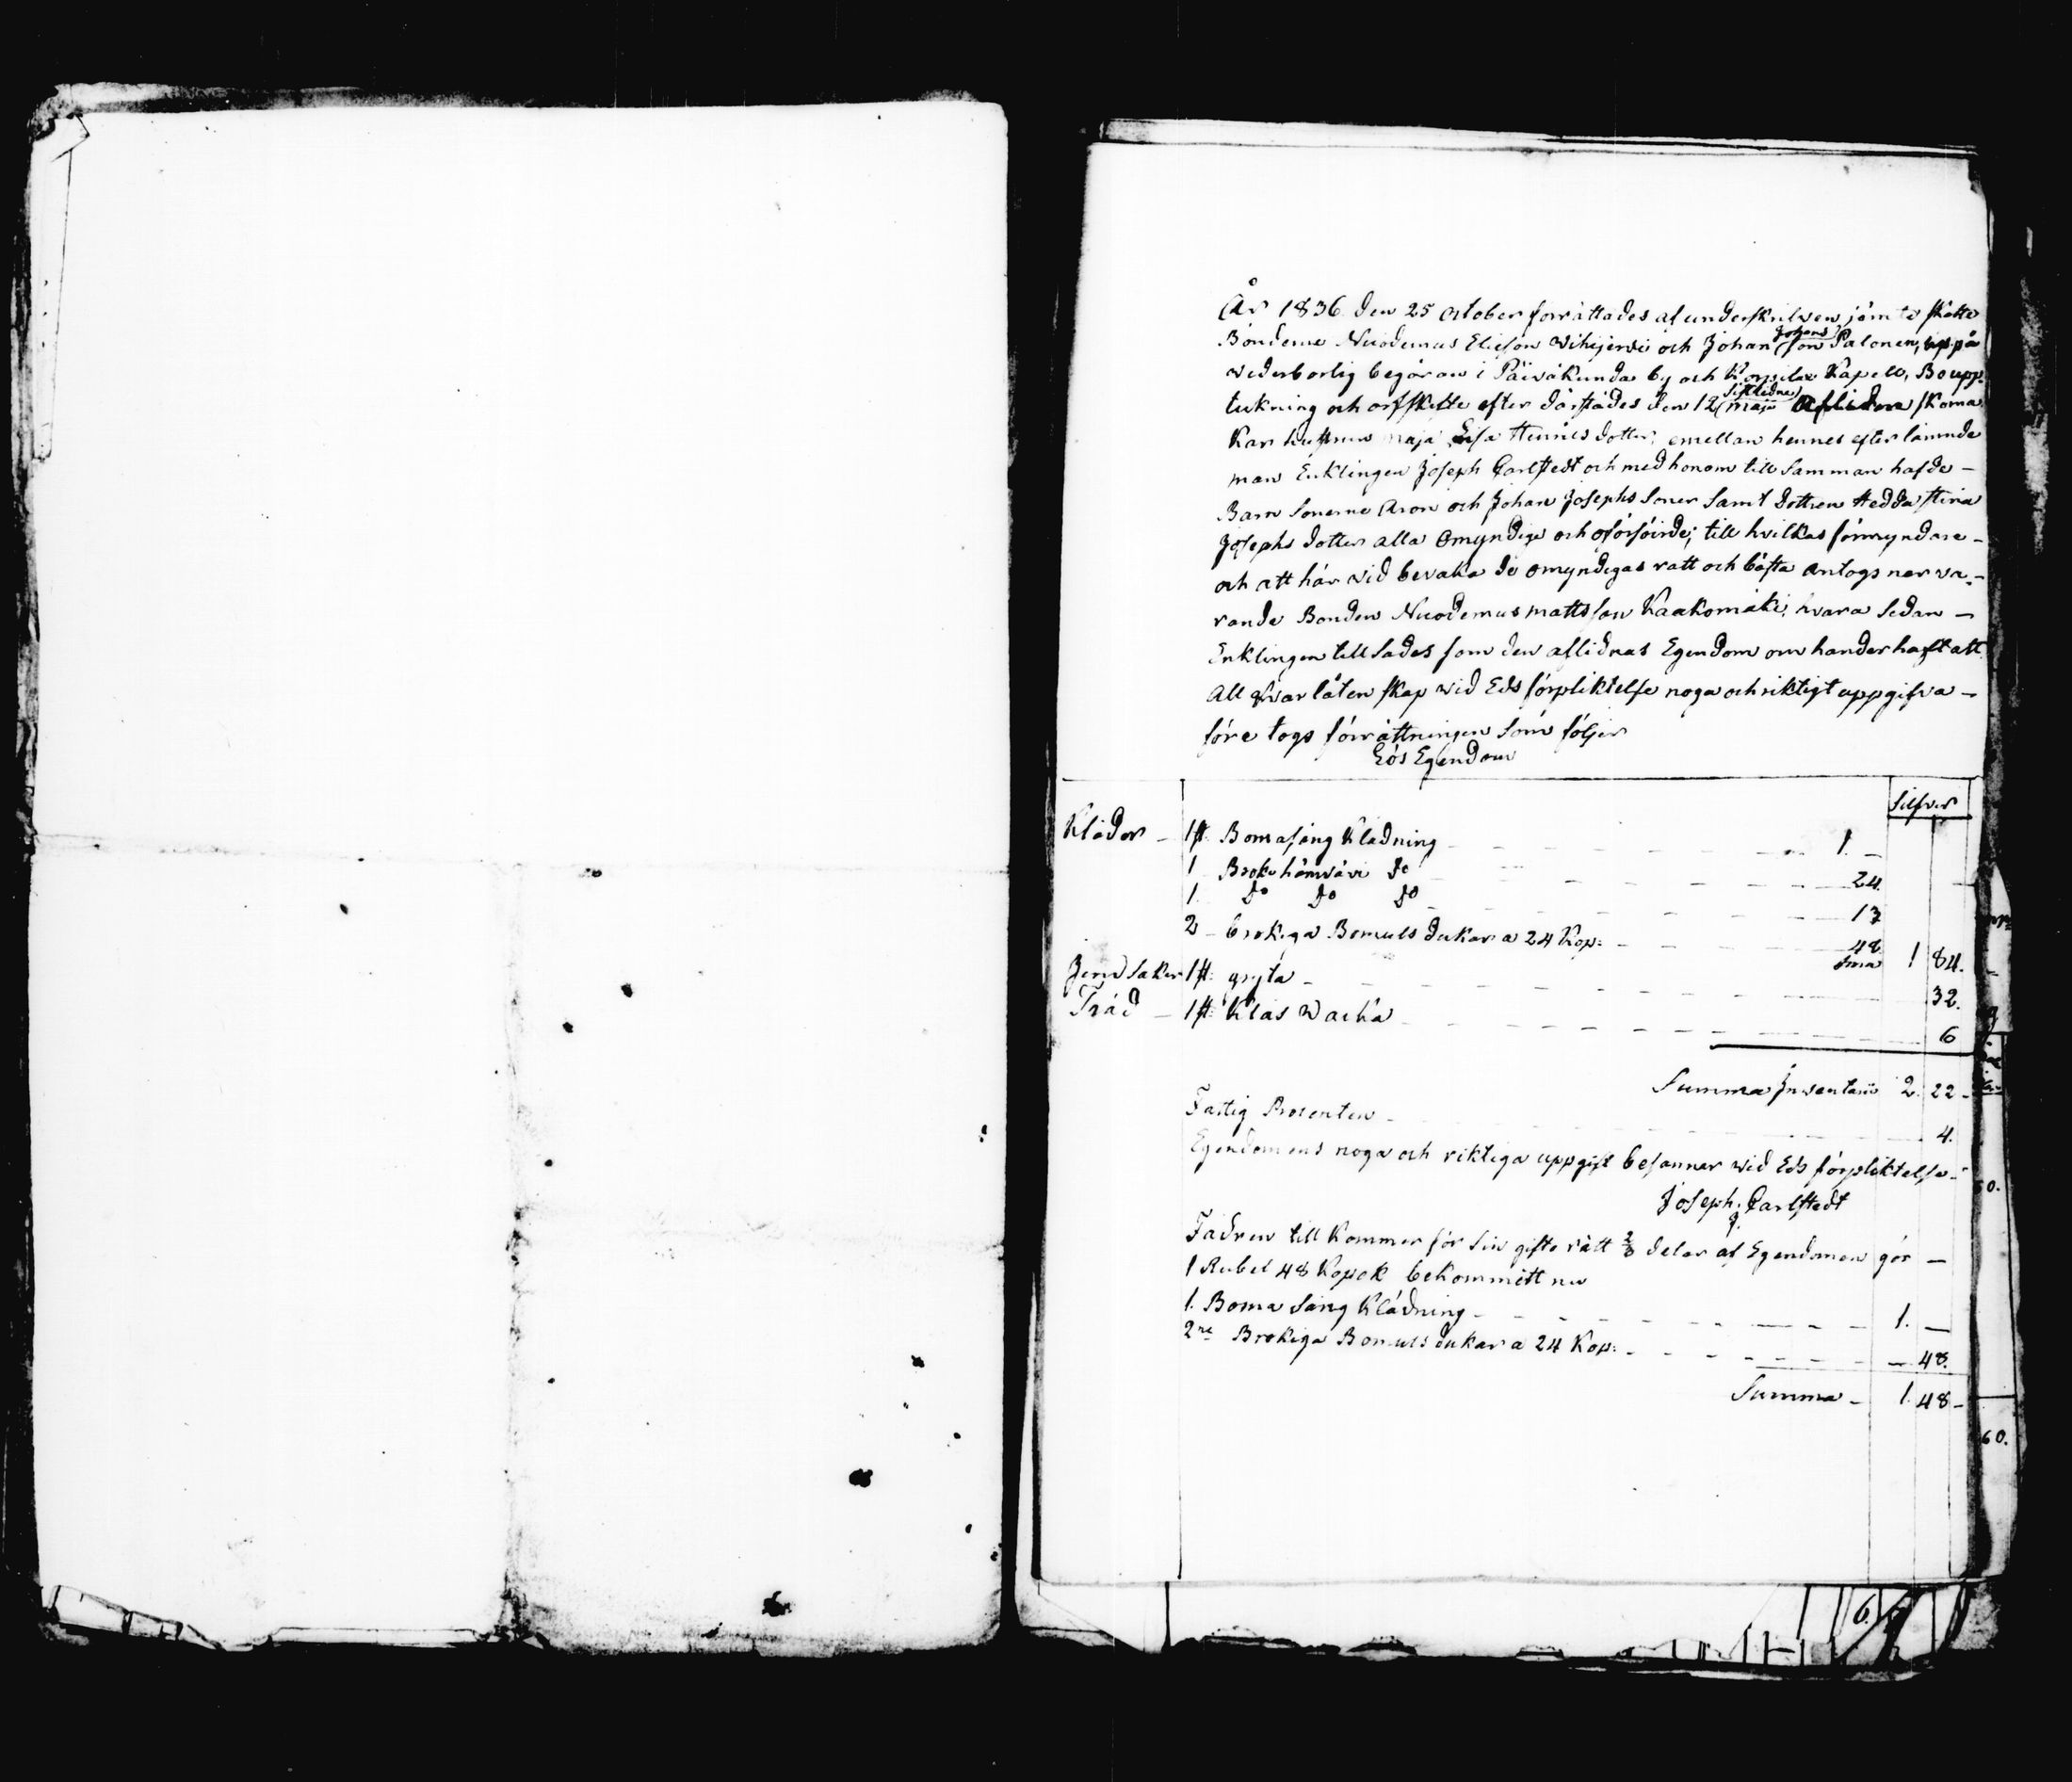 År 1836 den 25 october forrättades af underskrifven jämte skatte
Bönderne Nicodemus Elieson Wihijervi och Johan Johansson Palonen, uppå
wederborlig begäran i Päiväkunda by och Korpilax Kapell, Boupp-
tekning och arfskifte efter därstädes den 12 sistlidne maji aflidne skoma
kar hustrun maja Lisa Henrics dotter, emellan hennes efter lämnde
man Enklingen Joseph Carlstedt och med honom till samman hafde –
Barn Sonerne Aron och Johan Josephs Soner samt dottren Hedda Stina
Josephs dotter alla omyndige och oförsörde; till hvilkas förmyndare –
och att här wid bevaka de omyndigas rätt och bästa antogs nerva-
rande Bonden Nicodemus mattsson Kaakomäki, hvara sedan –
Enklingen till sades som den aflidnas Egendom om hander haft att
all qvarlåten skap wid Eds förpliktelse noga och riktigt uppgifva –
före togs förrättningen som följer
Lös Egendom
Silfver
Kläder – 1 st. Bomasäng Klädning – 1. –
1 Brok: hämwävi do – 24.
1. do do do – 13
2 – brokiga Bomuls dukar a 24 Kop: – 48. 1 84.
Jern saker 1 st: gryta – 32.
Träd – 1 st: Klas Wacka – 6
Summa Inventarii 2. 22 –
Fattig Procenten – 4.
Egendomens noga och riktiga uppgift besannar wid Eds förpliktelse –
Joseph. Carlstedt
Fadren till kommer för sin gifto rätt 2/3 delar af Egendomen gör –
1 Rubel 48 Kopek bekommitt nu
1. Boma säng Klädning – 1. –
2ne Brokiga Bomuls dukar a 24 Kop: – 48.
Summa – 1. 48 –
60.